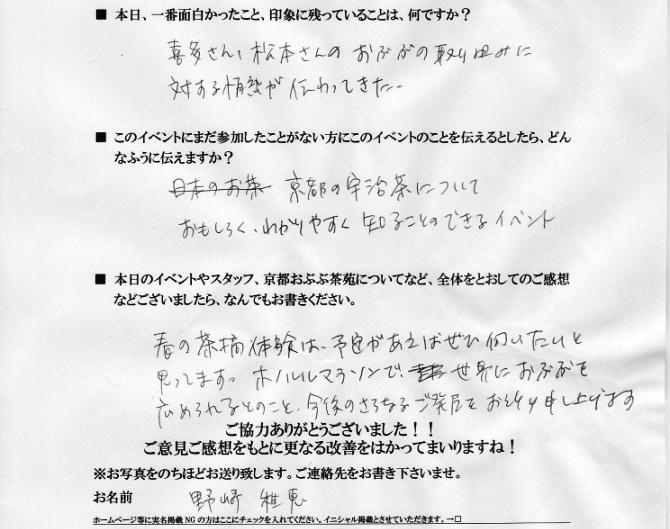 ■ 本日、一番面白かったこと、印象に残っていることは、何ですか？
喜多さん、松本さんの おぶぶの取り組みに
対する情熱が伝わってきた。
■ このイベントにまだ参加したことがない方にこのイベントのことを伝えるとしたら、どん
なふうに伝えますか？
日本のお茶 京都の宇治茶について
おもしろく、わかりやすく 知ることのできるイベント
■ 本日のイベントやスタッフ、京都おぶぶ茶苑についてなど、全体をとおしてのご感想
などございましたら、なんでもお書きください。
春の茶摘体験は、予定があえばぜひ伺いたいと
思ってます。ホノルルマラソンで、世界におぶぶを
広められるとのこと、今後のさらなるご発展をお祈り申し上げます
ご協力ありがとうございました！！
ご意見ご感想をもとに更なる改善をはかってまいりますね！
※お写真をのちほどお送り致します。ご連絡先をお書き下さいませ。
お名前 野崎 雅恵
ホームページ等に実名掲載NGの方はここにチェックを入れてください。イニシャル掲載とさせていただきます。→□